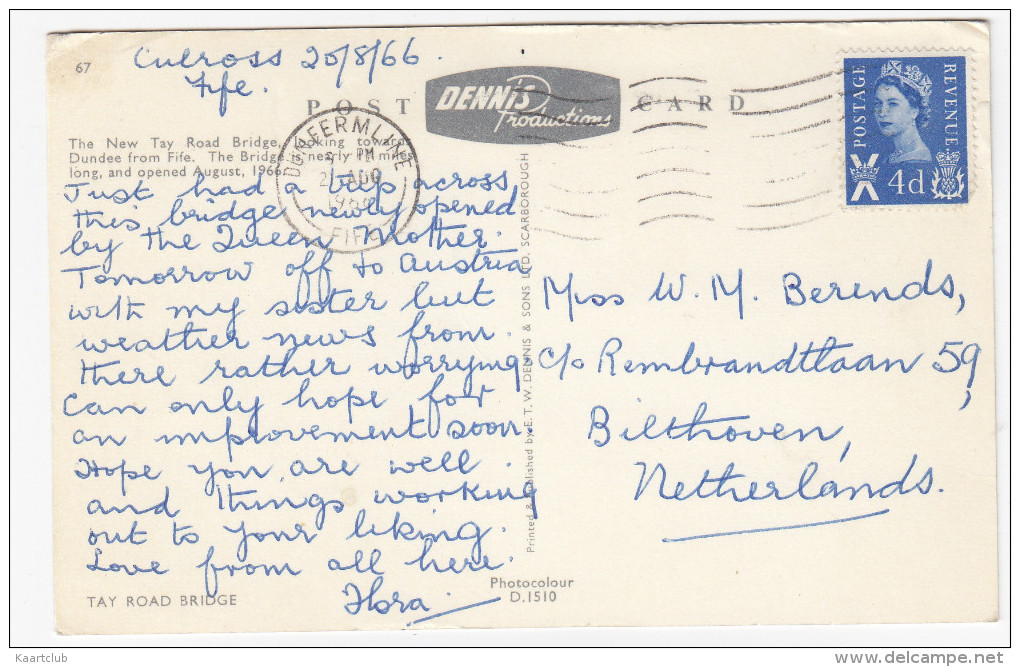 67
Culross 20/8/66.
Fife.
POST CARD
DENNIS
Productions
POSTAGE
REVENUE
4d
The New Tay Road Bridge, looking towards
Dundee from Fife. The Bridge is nearly miles
long, and opened August, 1966.
DUNFERMLINE
PM
AUG
FIFE
Just had a trip across
this bridge newly opened
by the Queen Mother.
Tomorrow off to Austria
with my sister but
weather news from
there rather worrying
Can only hope for
an improvement soon.
Hope you are well
and things working
out to your liking.
Love from all here.
Flora.
Miss W. M. Berends,
c/o Rembrandtlaan 59,
Bilthoven,
Netherlands.
Printed & Published by E. T. W. DENNIS & SONS LTD. SCARBOROUGH
Photocolour
D.1510
TAY ROAD BRIDGE
Kaartclub
delcampe.net